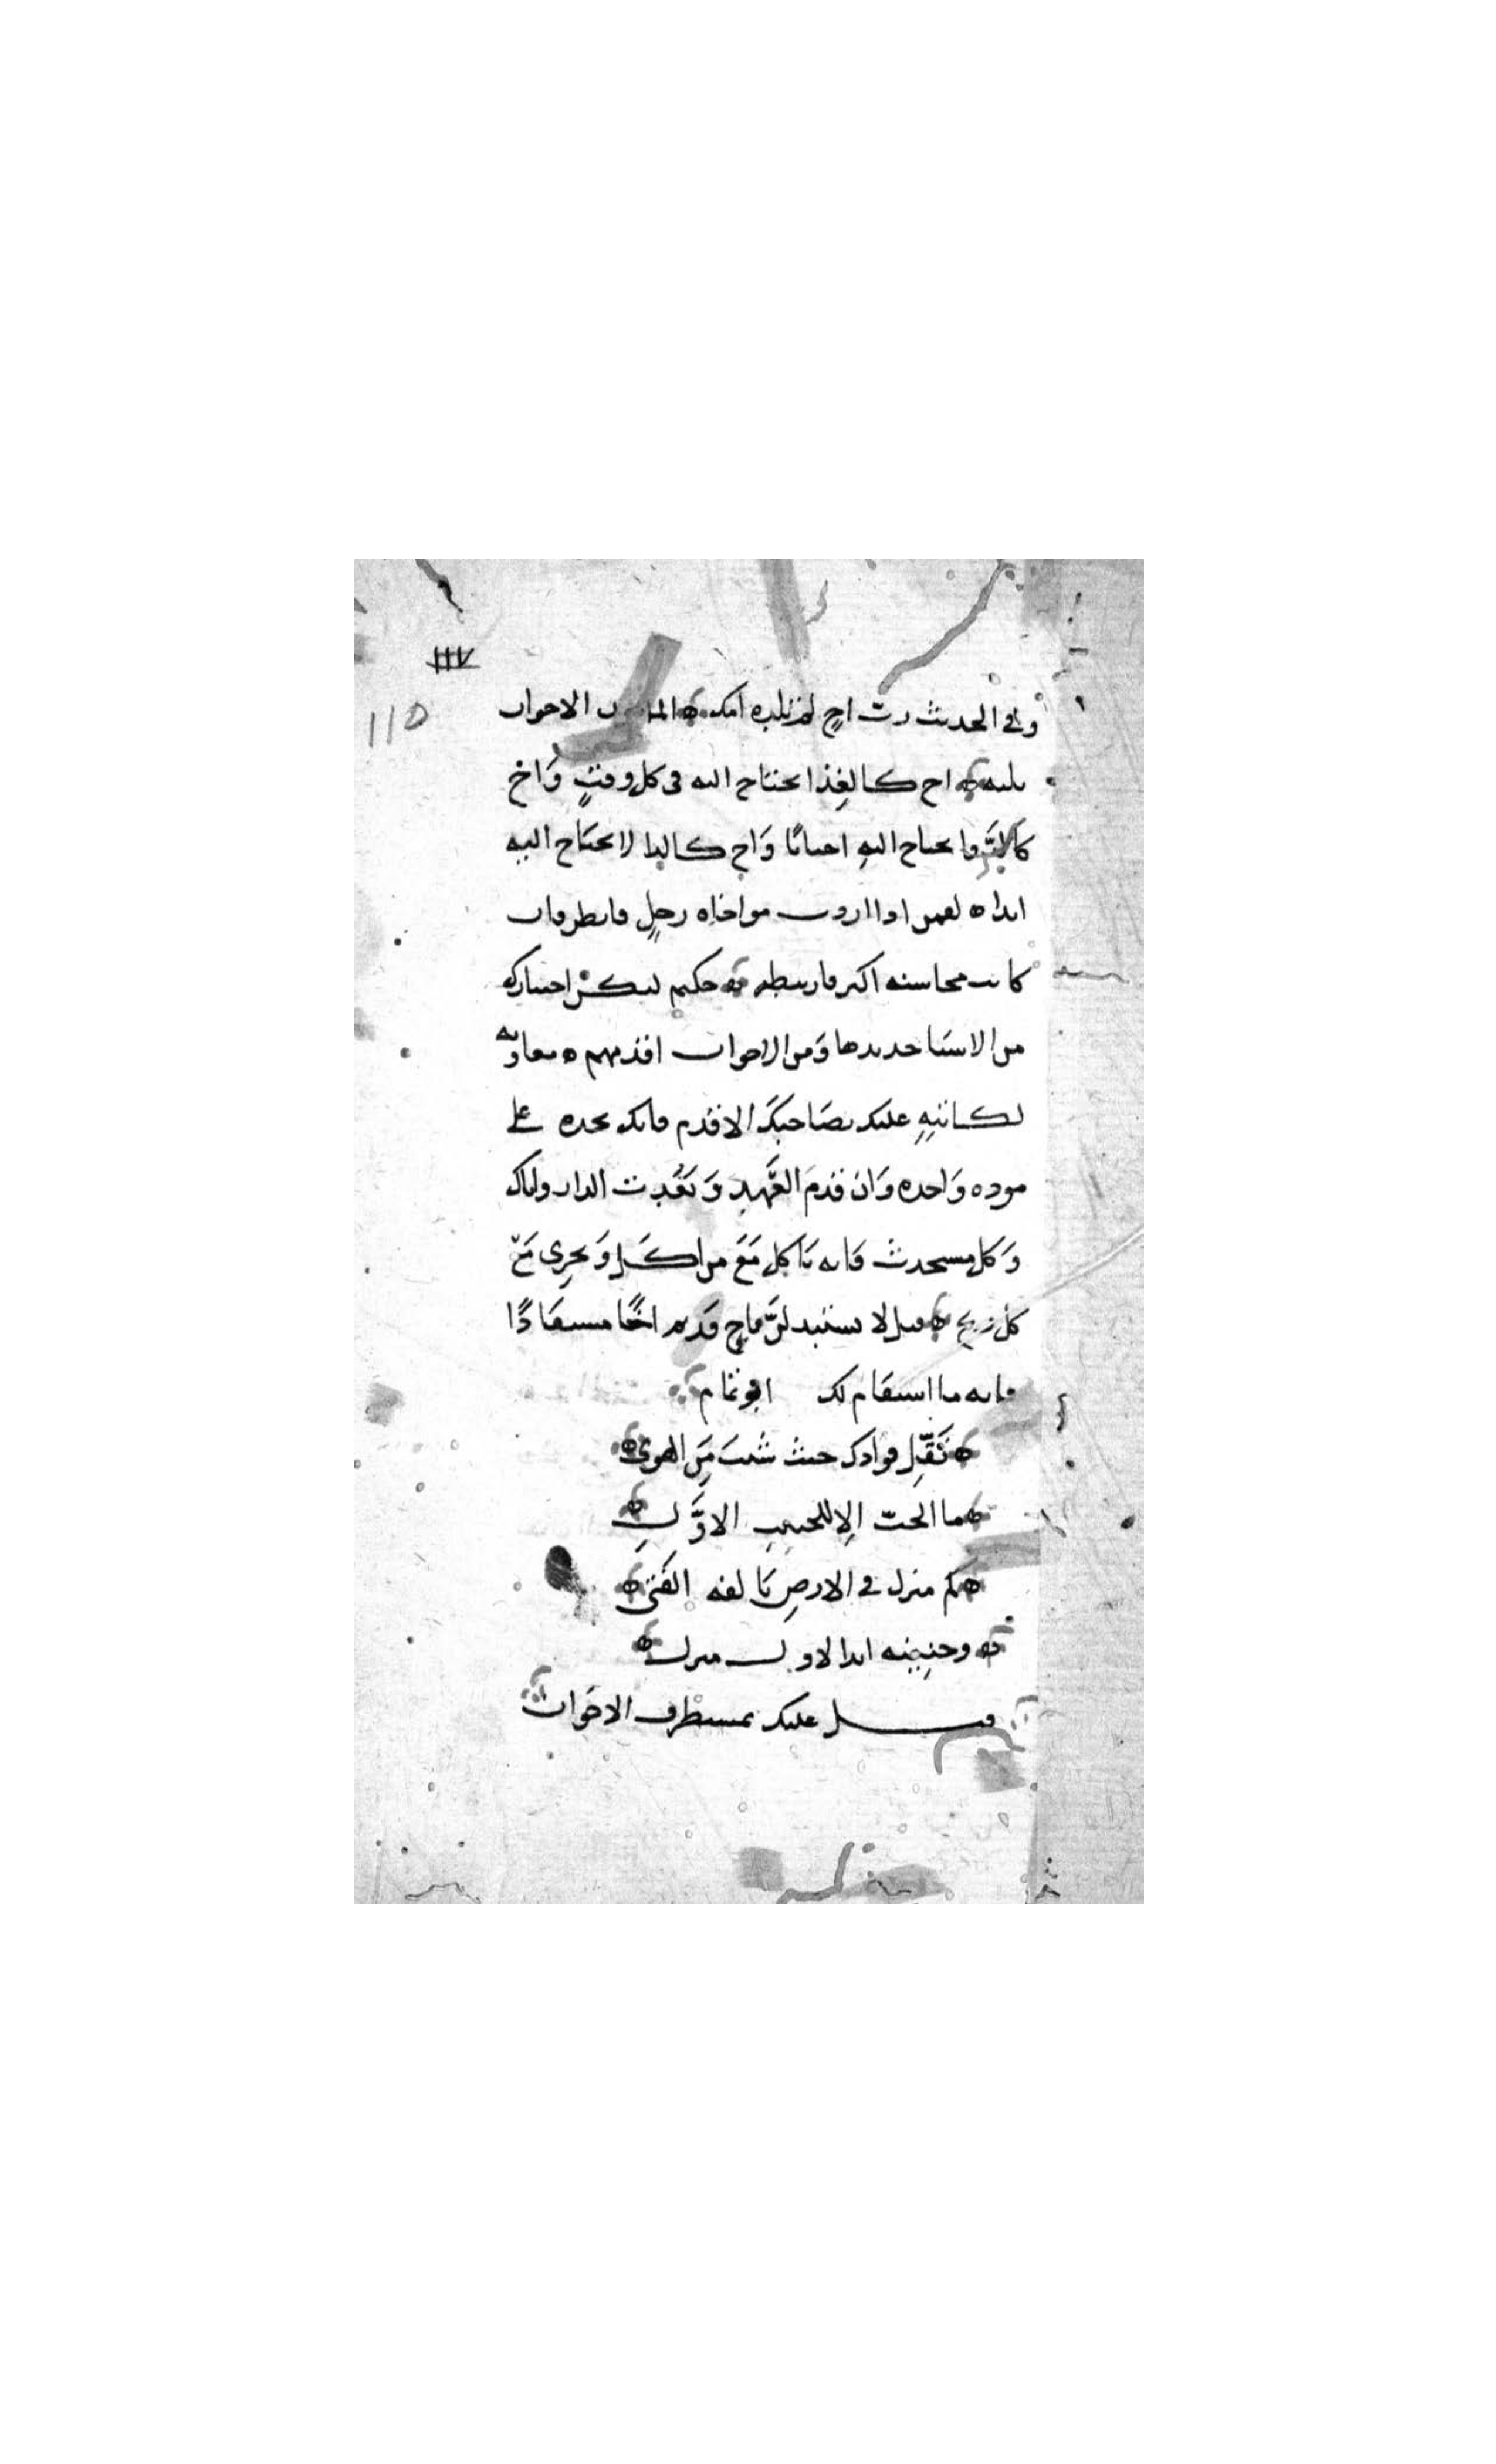 ١١٧
١١٥
وفي الحديث رب اخ لم تلده امك ه المامون الاخوان
ثلثه ه اخ كالغذا يحتاج اليه في كل وقتٍ وَاخ
كالدَّوا يحتاج اليهِ احيانًا وَاخ كالدا لا يحتَاج اليهِ
ابدا ه لقمن اذا اردت مواخاه رجلٍ فانظر فان
كانت محاسنه اكثر فارتبطه ه حكيم ليكنْ اختيارك
من الاشيَا جديدها وَمن الاخوان اقدمهم ه معاويه
لكاتبِهِ عليك بصَاحبكَ الاقدم فانك تجده على
موده وَاحده وَان قدمَ العَهد وَبَعُدت الدار واياك
وَكل مستحدث فَانه يَاكل مَعَ من اكَلَ وَيجرِى مَعَ
كل ريح ه قيل لا تستبدلنَّ باخٍ قَديم اخًا مستفَادًا
فانه ما استقَام لك ابو تمام
ه نَقِّل فوادك حيث شئتَ مِنَ الهوى ه
ه ما الحبّ الا للحبيبِ الاوَّلِ ه
ه كم منزل في الارضِ يَالفه الفَتى ه
ه وحنينه ابدا لاول منزل ه
قيل عليك بمستطرف الاخوان